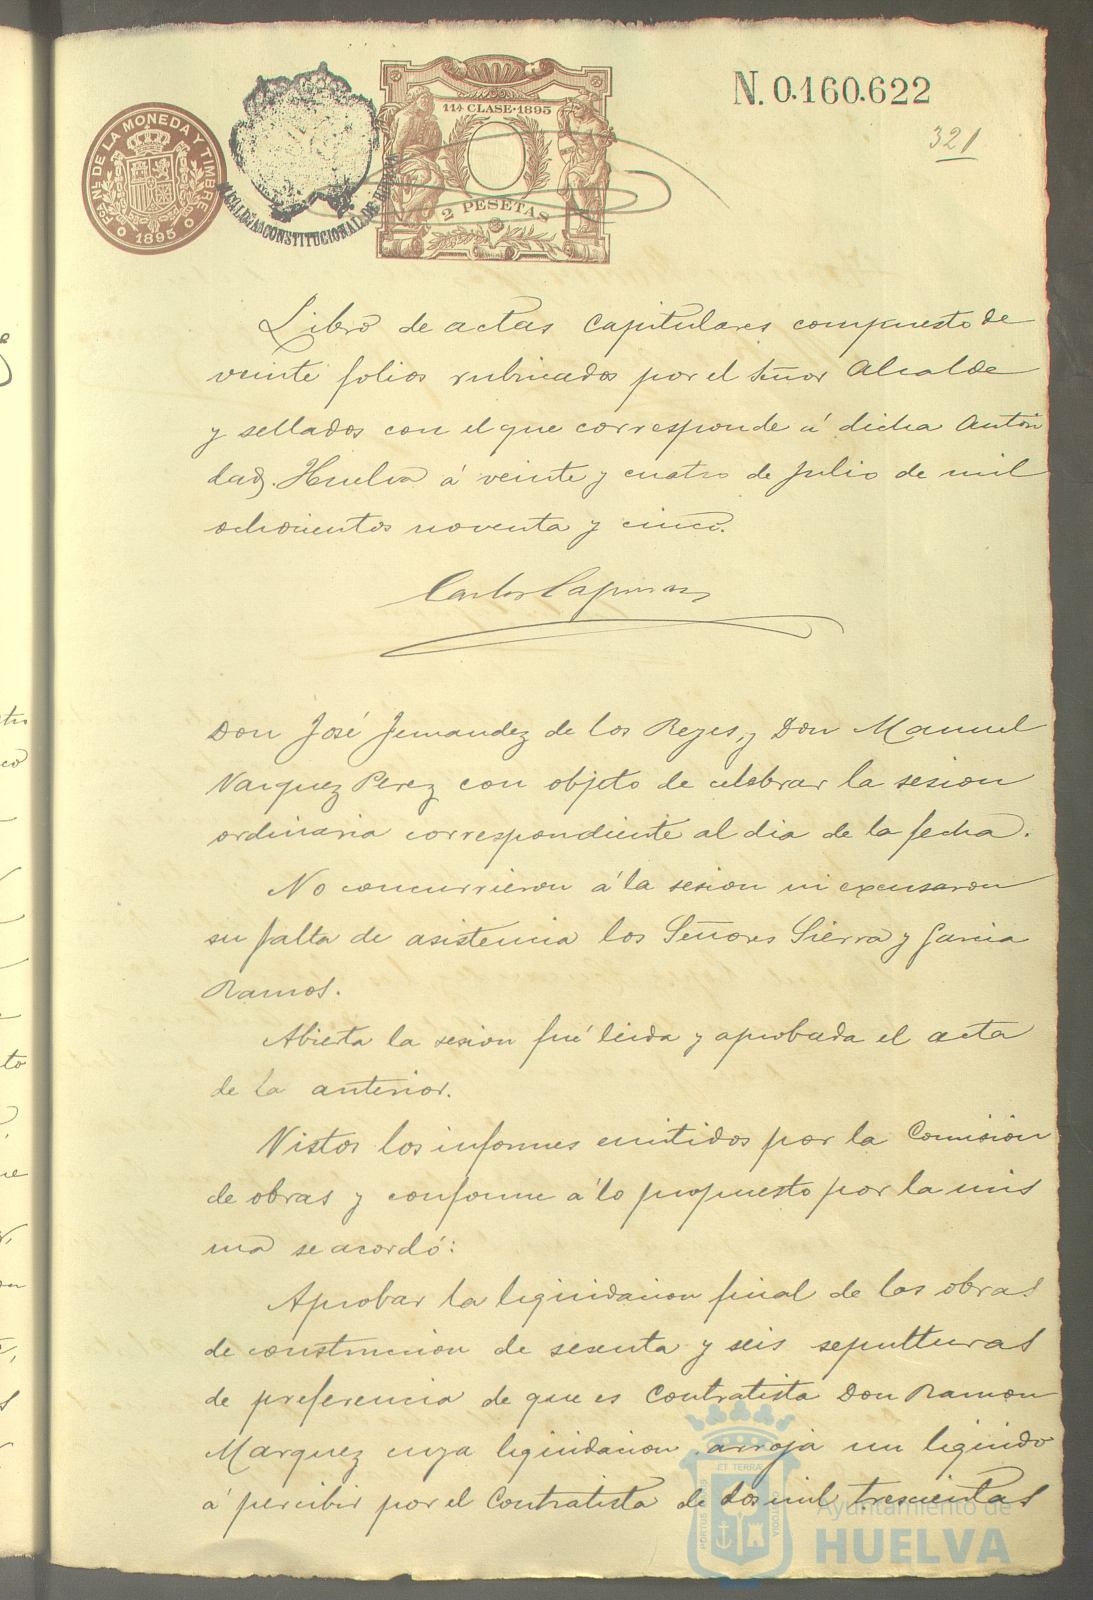 N. 0.160.622
321
11ª CLASE·1895
2 PESETAS
FCA NAL DE LA MONEDA Y TIMBRE
1895
ALCALDIA CONSTITUCIONAL DE HUELVA
Libro de actas Capitulares compuesto de
veinte folios rubricados por el Señor Alcalde
y sellados con el que corresponde á dicha Autori
dad. Huelva á veinte y cuatro de Julio de mil
ochocientos noventa y cinco.
Carlos
Don José Fernandez de los Reyes, y Don Manuel
Vazquez Perez con objeto de celebrar la sesion
ordinaria correspondiente al dia de la fecha.
No concurrieron á la sesion ni excusaron
su falta de asistencia los Señores Sierra y Garcia
Ramos.
Abierta la sesion fué leida y aprobada el acta
de la anterior.
Vistos los informes emitidos por la Comision
de obras y conforme á lo propuesto por la mis
ma se acordó:
Aprobar la liquidacion final de las obras
de construccion de sesenta y seis sepulturas
de preferencia de que es Contratista Don Ramon
Marquez cuya liquidacion arroja un liquido
á percibir por el Contratista de dos mil trescientas
PORTUS MARIS
ET TERRÆ
CUSTODIA
Ayuntamiento de
HUELVA